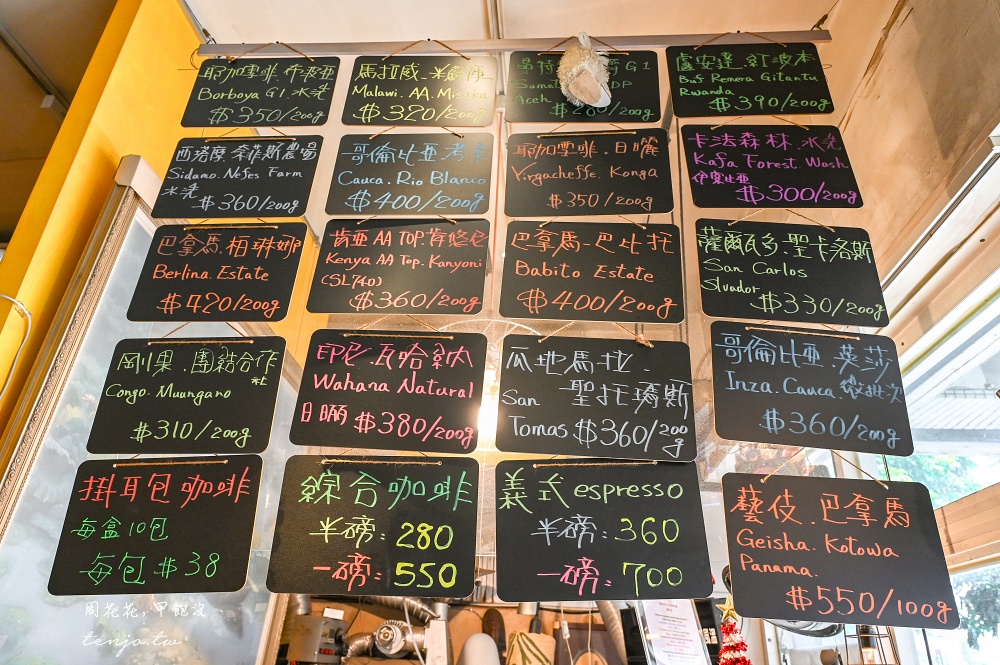 耶加雪啡.保波亞
Borboya G1.水洗
$350/200g
馬拉威.米蘇庫
Malawi. AA. Misuku
$320/200g
G1
Aceh
$280/200g
盧安達.紅波本
Buf Remera Gitantu
Rwanda
$390/200g
西塔摩.奈菲斯農場
Sidamo. Nefes Farm
水洗
$360/200g
哥倫比亞.考卡
Cauca. Rio Blanco
$400/200g
耶加雪啡.日曬
Yirgacheffe. Konga
$350/200g
卡法森林.水洗
Kafa Forest Wash
伊索比亞
$300/200g
巴拿馬.柏琳娜
Berlina. Estate
$420/200g
肯亞AA TOP.肯悠尼
Kenya AA Top. Kanyoni
(SL740)
$360/200g
巴拿馬-巴比托
Babito Estate
$400/200g
薩爾瓦多.聖卡洛斯
San Carlos
Slvador
$330/200g
剛果.團結合作
社
Congo. Muungano
$310/200g
印尼.瓦哈納
Wahana Natural
日曬 $380/200g
瓜地馬拉.
San 聖托瑪斯
Tomas $360/200g
哥倫比亞.英莎
Inza. Cauca. 微批次
$360/200g
掛耳包咖啡
每盒10包
每包$38
綜合咖啡
半磅: 280
一磅: 550
義式espresso
半磅: 360
一磅: 700
藝伎.巴拿馬
Geisha. Kotowa
Panama.
$550/100g
周花花,甲飽沒
tenjo.tw